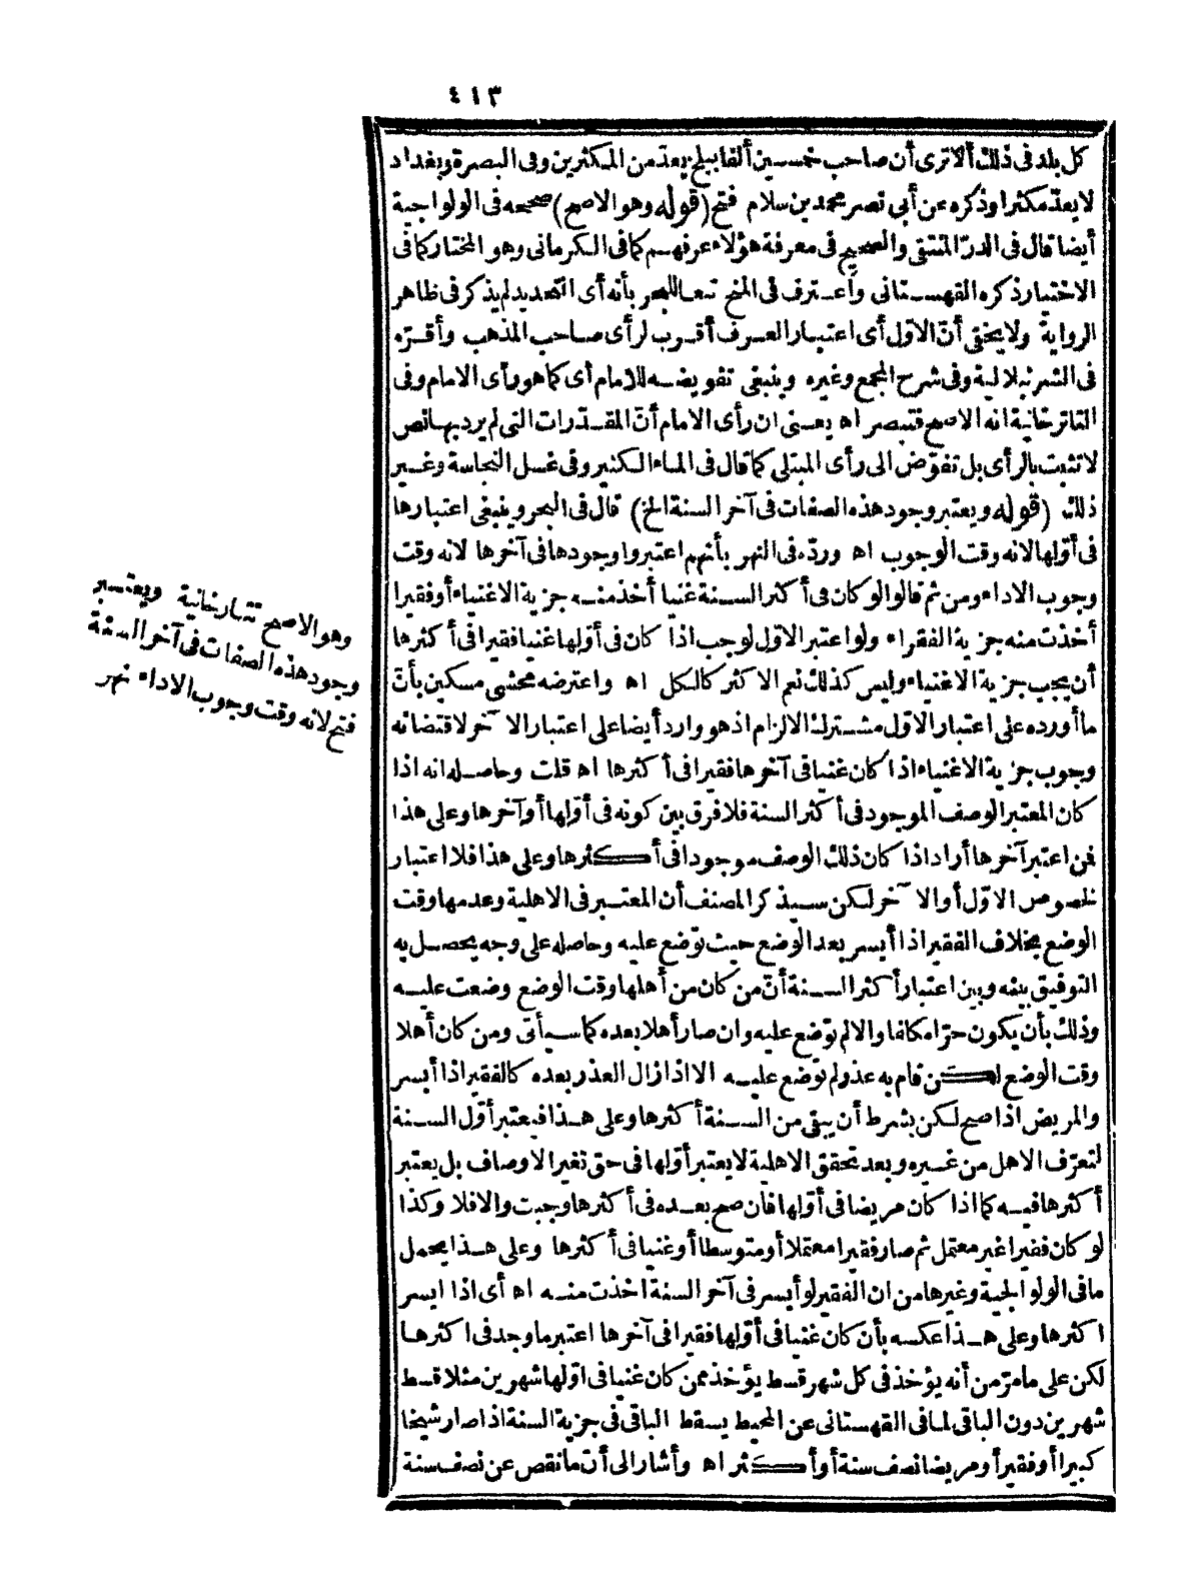 ٤١٣
كل بلد فى ذلك ألا ترى أن صاحب خمسين ألفا ببلخ يعدّ من المكثرين وفى البصرة وبغداد
لا يعدّ مكثرا وذكره عن أبى نصر محمد بن سلام فتح (قوله وهو الاصح) صححه فى الولوالجية
أيضا قال فى الدرّ المنتقى والصحيح فى معرفة هؤلاء عرفهم كما فى الكرمانى وهو المختار كما فى
الاختيار ذكره القهستانى واعترف فى المنح تبعا للبحر بأنه أى التحديد لم يذكر فى ظاهر
الرواية ولا يخفى أنّ الاوّل أى اعتبار العرف أقرب لرأى صاحب المذهب وأقرّه
فى الشرنبلالية وفى شرح المجمع وغيره وينبغى تفويضه للامام أى كما هو رأى الامام وفى
التاترخانية انه الاصح فتبصر اه يعنى ان رأى الامام أنّ المقدّرات التى لم يرد بها نص
لا تثبت بالرأى بل تفوّض الى رأى المبتلى كما قال فى الماء الكثير وفى غسل النجاسة وغير
ذلك (قوله ويعتبر وجود هذه الصفات فى آخر السنة الخ) قال فى البحر وينبغى اعتبارها
فى أوّلها لانه وقت الوجوب اه وردّه فى النهر بأنهم اعتبروا وجودها فى آخرها لانه وقت
وجوب الاداء ومن ثم قالوا لو كان فى أكثر السنة غنيا أخذ منه جزية الاغنياء أو فقيرا
أخذت منه جزية الفقراء ولو اعتبر الاوّل لوجب اذا كان فى أوّلها غنيا فقيرا فى أكثرها
أن يجب جزية الاغنياء وليس كذلك نعم الاكثر كالكل اه واعترضه محشى مسكين بأنّ
ما أورده على اعتبار الاوّل مشترك الالزام اذ هو وارد أيضا على اعتبار الآخر لاقتضائه
وجوب جزية الاغنياء اذا كان غنيا فى آخرها فقيرا فى أكثرها اه قلت وحاصله انه اذا
كان المعتبر الوصف الموجود فى أكثر السنة فلا فرق بين كونه فى أوّلها أو آخرها وعلى هذا
فمن اعتبر آخرها أراد اذا كان ذلك الوصف موجودا فى أكثرها وعلى هذا فلا اعتبار
لخصوص الاوّل أو الآخر لكن سيذكر المصنف أن المعتبر فى الاهلية وعدمها وقت
الوضع بخلاف الفقير اذا أيسر بعد الوضع حيث توضع عليه وحاصله على وجه يحصل به
التوفيق بينه وبين اعتبار أكثر السنة أنّ من كان من أهلها وقت الوضع وضعت عليه
وذلك بأن يكون حرّا مكلفا والا لم توضع عليه وان صار أهلا بعده كما سيأتى ومن كان أهلا
وقت الوضع لكن قام به عذر لم توضع عليه الا اذا زال العذر بعده كالفقير اذا أيسر
والمريض اذا صح لكن بشرط أن يبقى من السنة أكثرها وعلى هذا فيعتبر أوّل السنة
لتعرّف الاهل من غيره وبعد تحقق الاهلية لا يعتبر أوّلها فى حق تغير الاوصاف بل يعتبر
أكثرها فيه كما اذا كان مريضا فى أوّلها فان صح بعده فى أكثرها وجبت والا فلا وكذا
لو كان فقيرا غير معتمل ثم صار فقيرا معتملا أو متوسطا أو غنيا فى أكثرها وعلى هذا يحمل
ما فى الولوالجية وغيرها من ان الفقير لو أيسر فى آخر السنة اخذت منه اه أى اذا ايسر
اكثرها وعلى هذا عكسه بأن كان غنيا فى أوّلها فقيرا فى آخرها اعتبر ما وجد فى اكثرها
لكن على ما مرّ من أنه يؤخذ فى كل شهر قسط يؤخذ ممن كان غنيا فى اوّلها شهرين مثلا قسط
شهرين دون الباقى لما فى القهستانى عن المحيط يسقط الباقى فى جزية السنة اذا صار شيخا
كبيرا أو فقيرا أو مريضا نصف سنة أو أكثر اه وأشار الى أنّ ما نقص عن نصف سنة
وهو الاصح تتارخانية ويعتبر
وجود هذه الصفات فى آخر السنة
فتح لانه وقت وجوب الاداء نهر